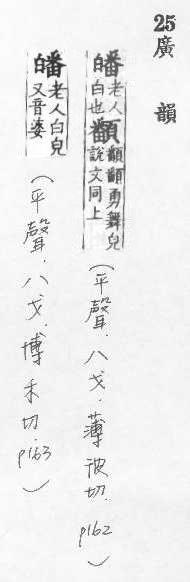 25 廣韻
皤老人白也䪤䪤䪤勇舞皃說文同上（平聲．八戈．薄波切．p162）
皤老人白皃又音婆（平聲．八戈．博禾切．p163）